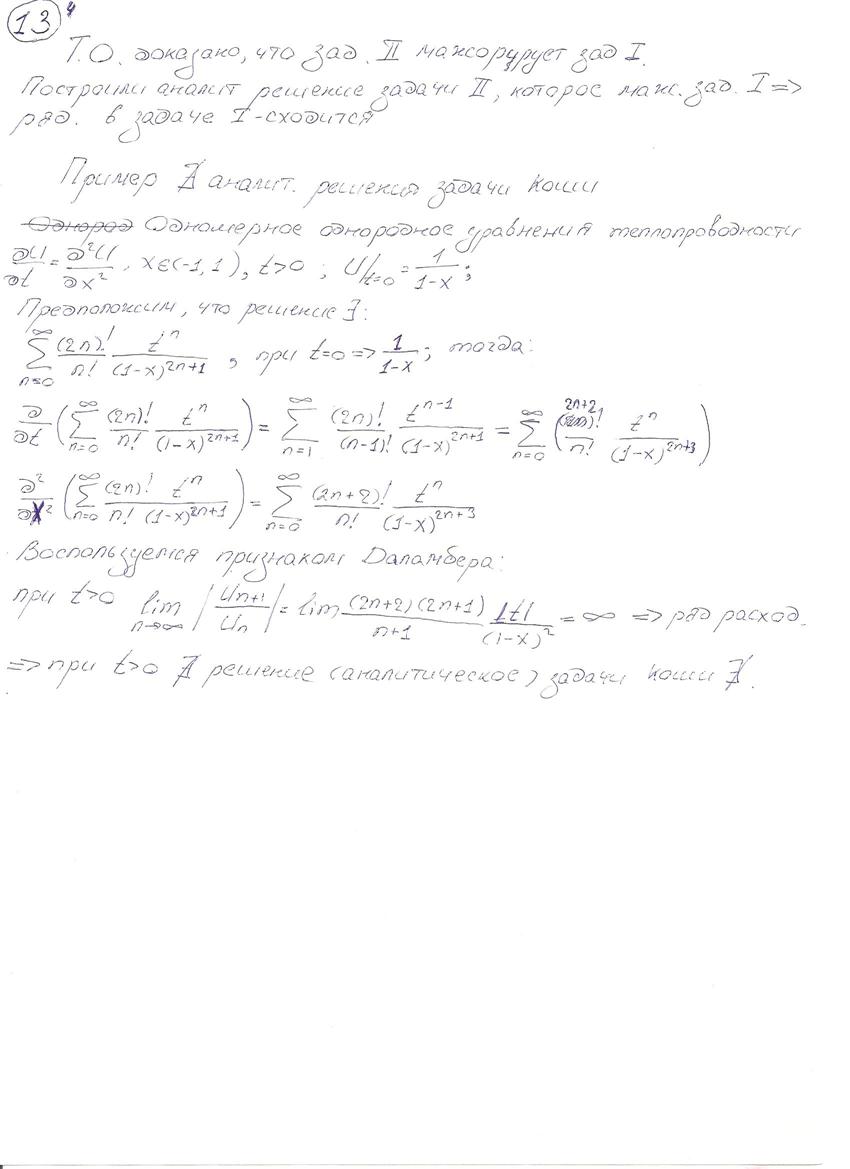 13 4
Т.О. доказано, что зад. II мажорурует зад I.
Построили аналит решение задачи II, которое маж. зад. I =>
ряд. в задаче I - сходится
Пример ∄ аналит. решения задачи Коши
Однород Одномерное однородное уравнения теплопроводности
∂U/∂t = ∂²U/∂x², x∈(-1,1), t>0; U/t=0 = 1/(1-x);
Предположим, что решение ∃:
∑_{n=0}^{∞} (2n)!/n! t^n/(1-x)^{2n+1}, при t=0 => 1/(1-x); тогда:
∂/∂t (∑_{n=0}^{∞} (2n)!/n! t^n/(1-x)^{2n+1}) = ∑_{n=1}^{∞} (2n)!/(n-1)! t^{n-1}/(1-x)^{2n+1} = ∑_{n=0}^{∞} ((2n+2)!/n! t^n/(1-x)^{2n+3})
∂²/∂x² (∑_{n=0}^{∞} (2n)!/n! t^n/(1-x)^{2n+1}) = ∑_{n=0}^{∞} (2n+2)!/n! t^n/(1-x)^{2n+3}
Воспользуемся признаком Даламбера:
при t>0 lim_{n→∞} |U_{n+1}/U_n| = lim (2n+2)(2n+1)/(n+1) |t|/(1-x)² = ∞ => ряд расход.
=> при t>0 ∄ решение (аналитическое) задачи Коши ∄.